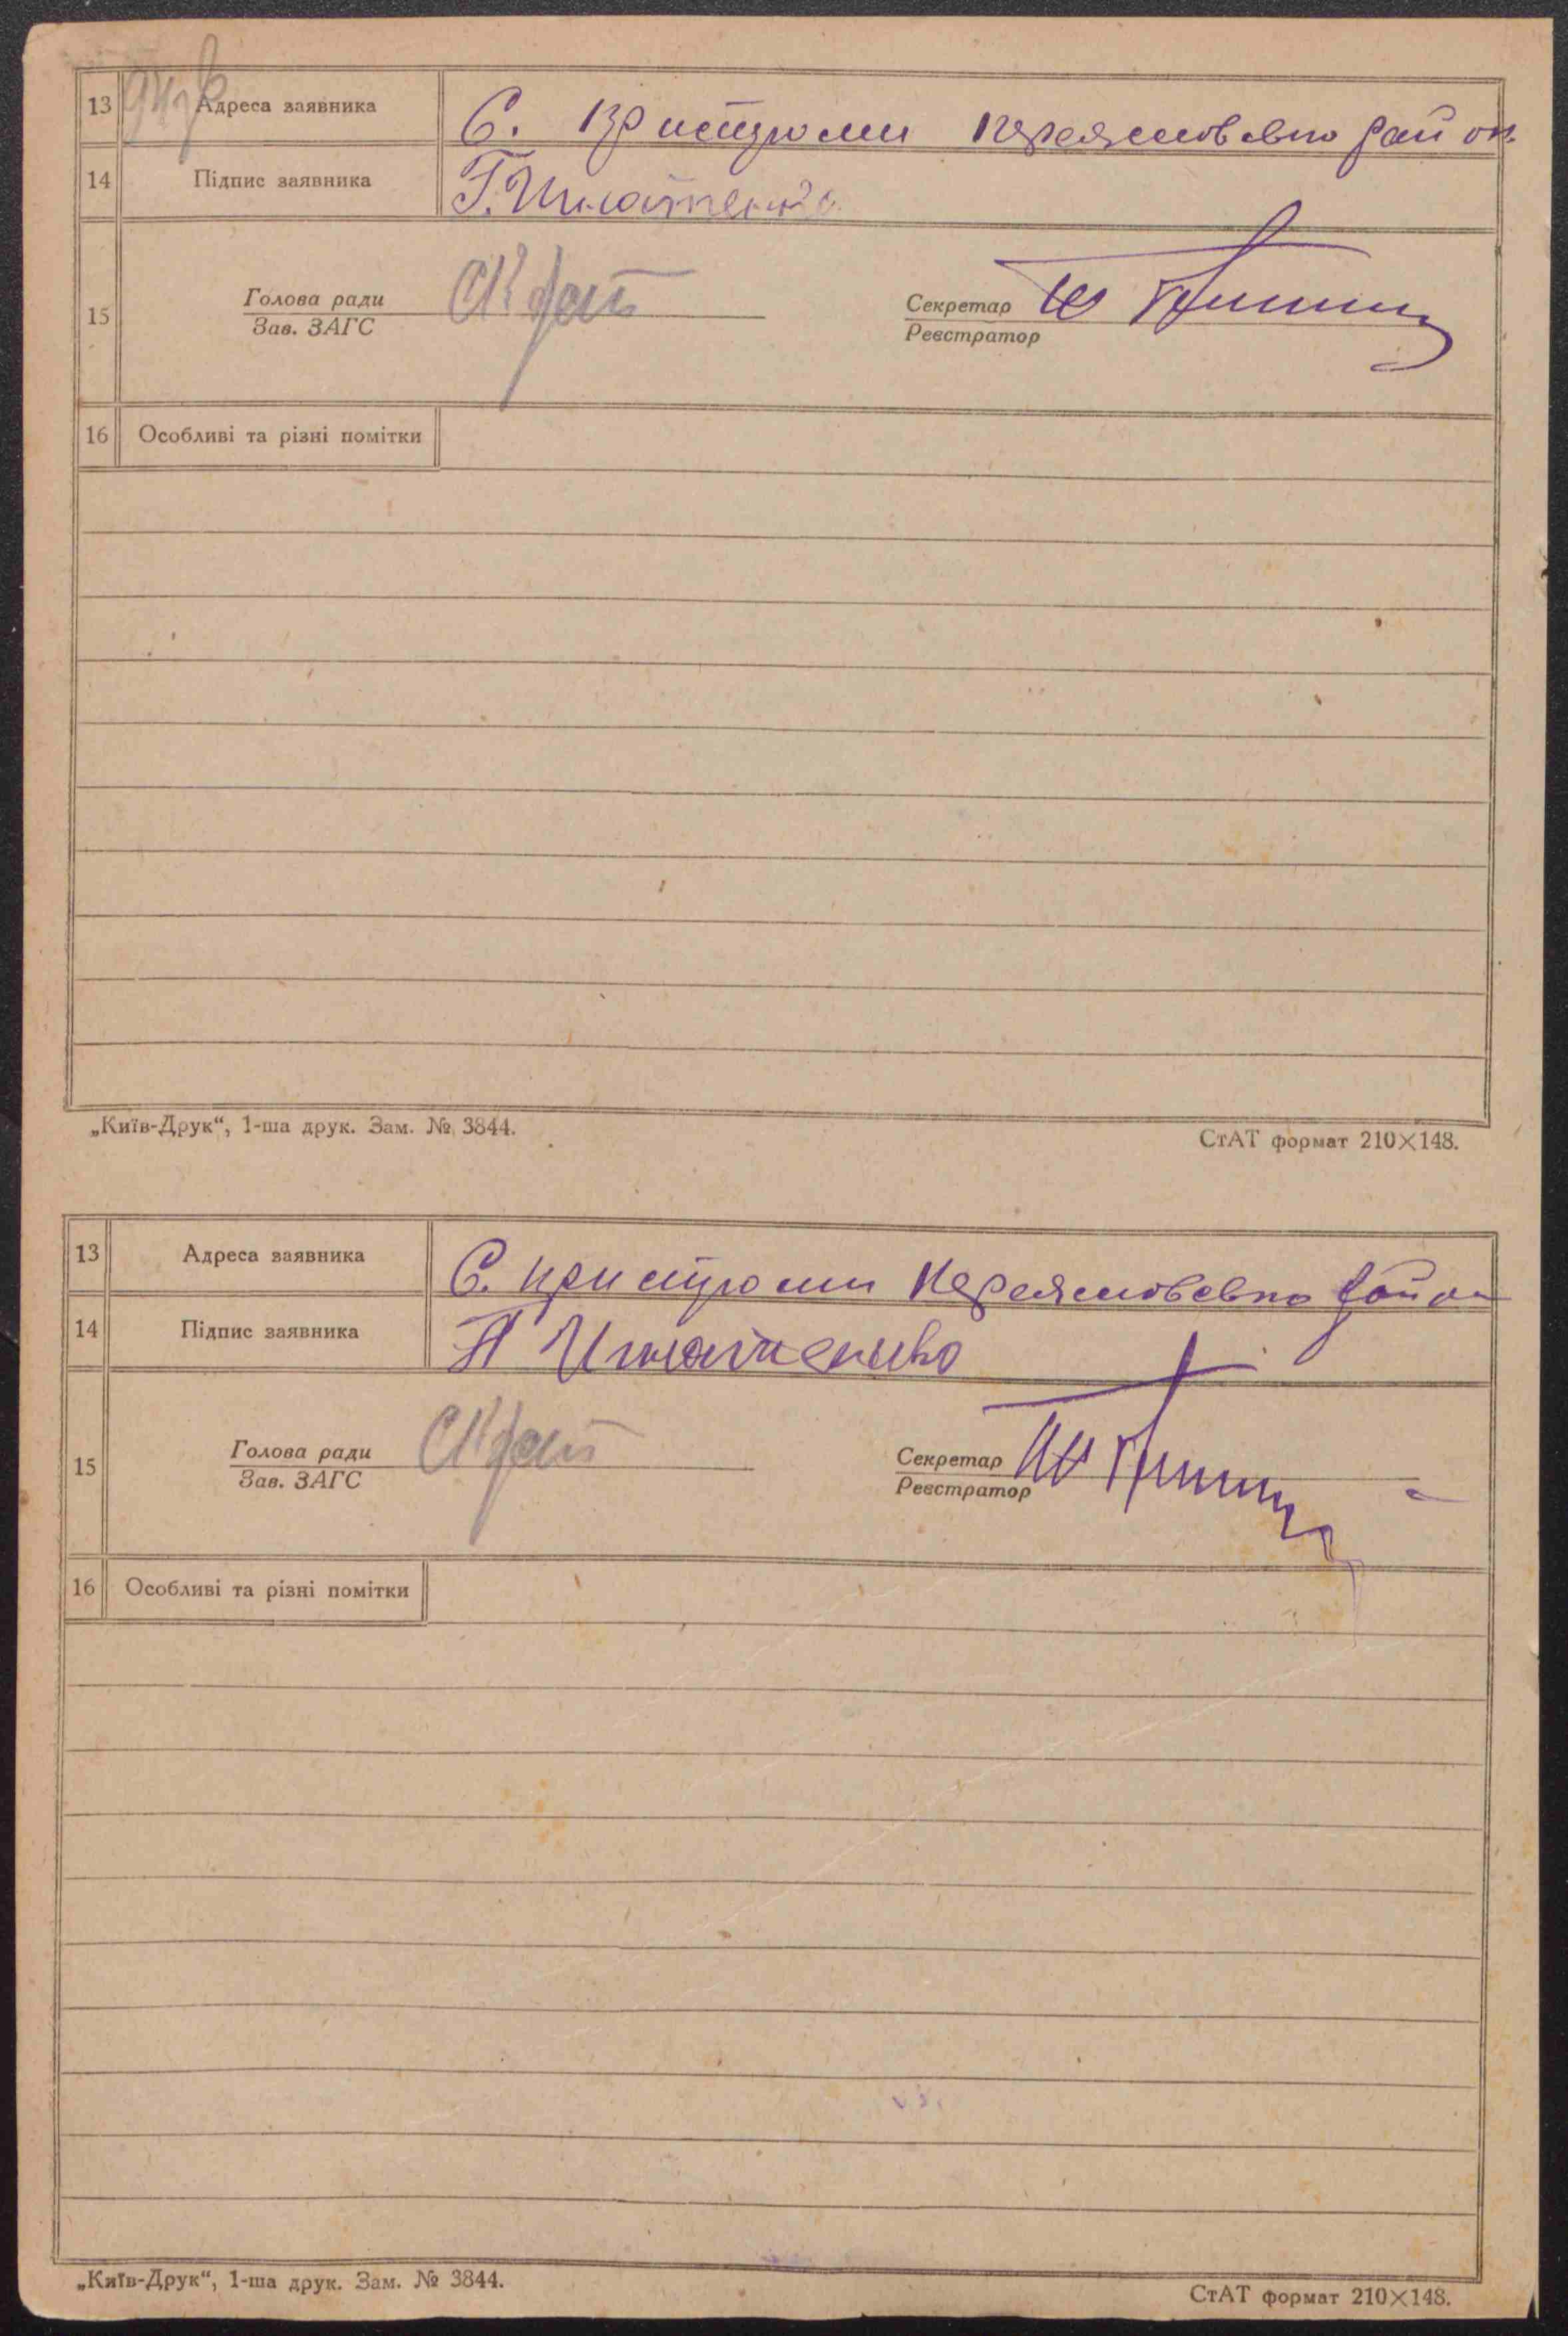 13 Адреса заявника С. Пристроми Переяславсько район.
14 Підпис заявника Г. Игнатенко
15 Голова ради Секретар
Зав. ЗАГС Реєстратор
16 Особливі та різні помітки
„Київ-Друк“, 1-ша друк. Зам. № 3844.
СтАТ формат 210×148.
13 Адреса заявника С. Пристроми Переяславсько район
14 Підпис заявника Игнатенко
15 Голова ради Секретар
Зав. ЗАГС Реєстратор
16 Особливі та різні помітки
„Київ-Друк“, 1-ша друк. Зам. № 3844.
СтАТ формат 210×148.